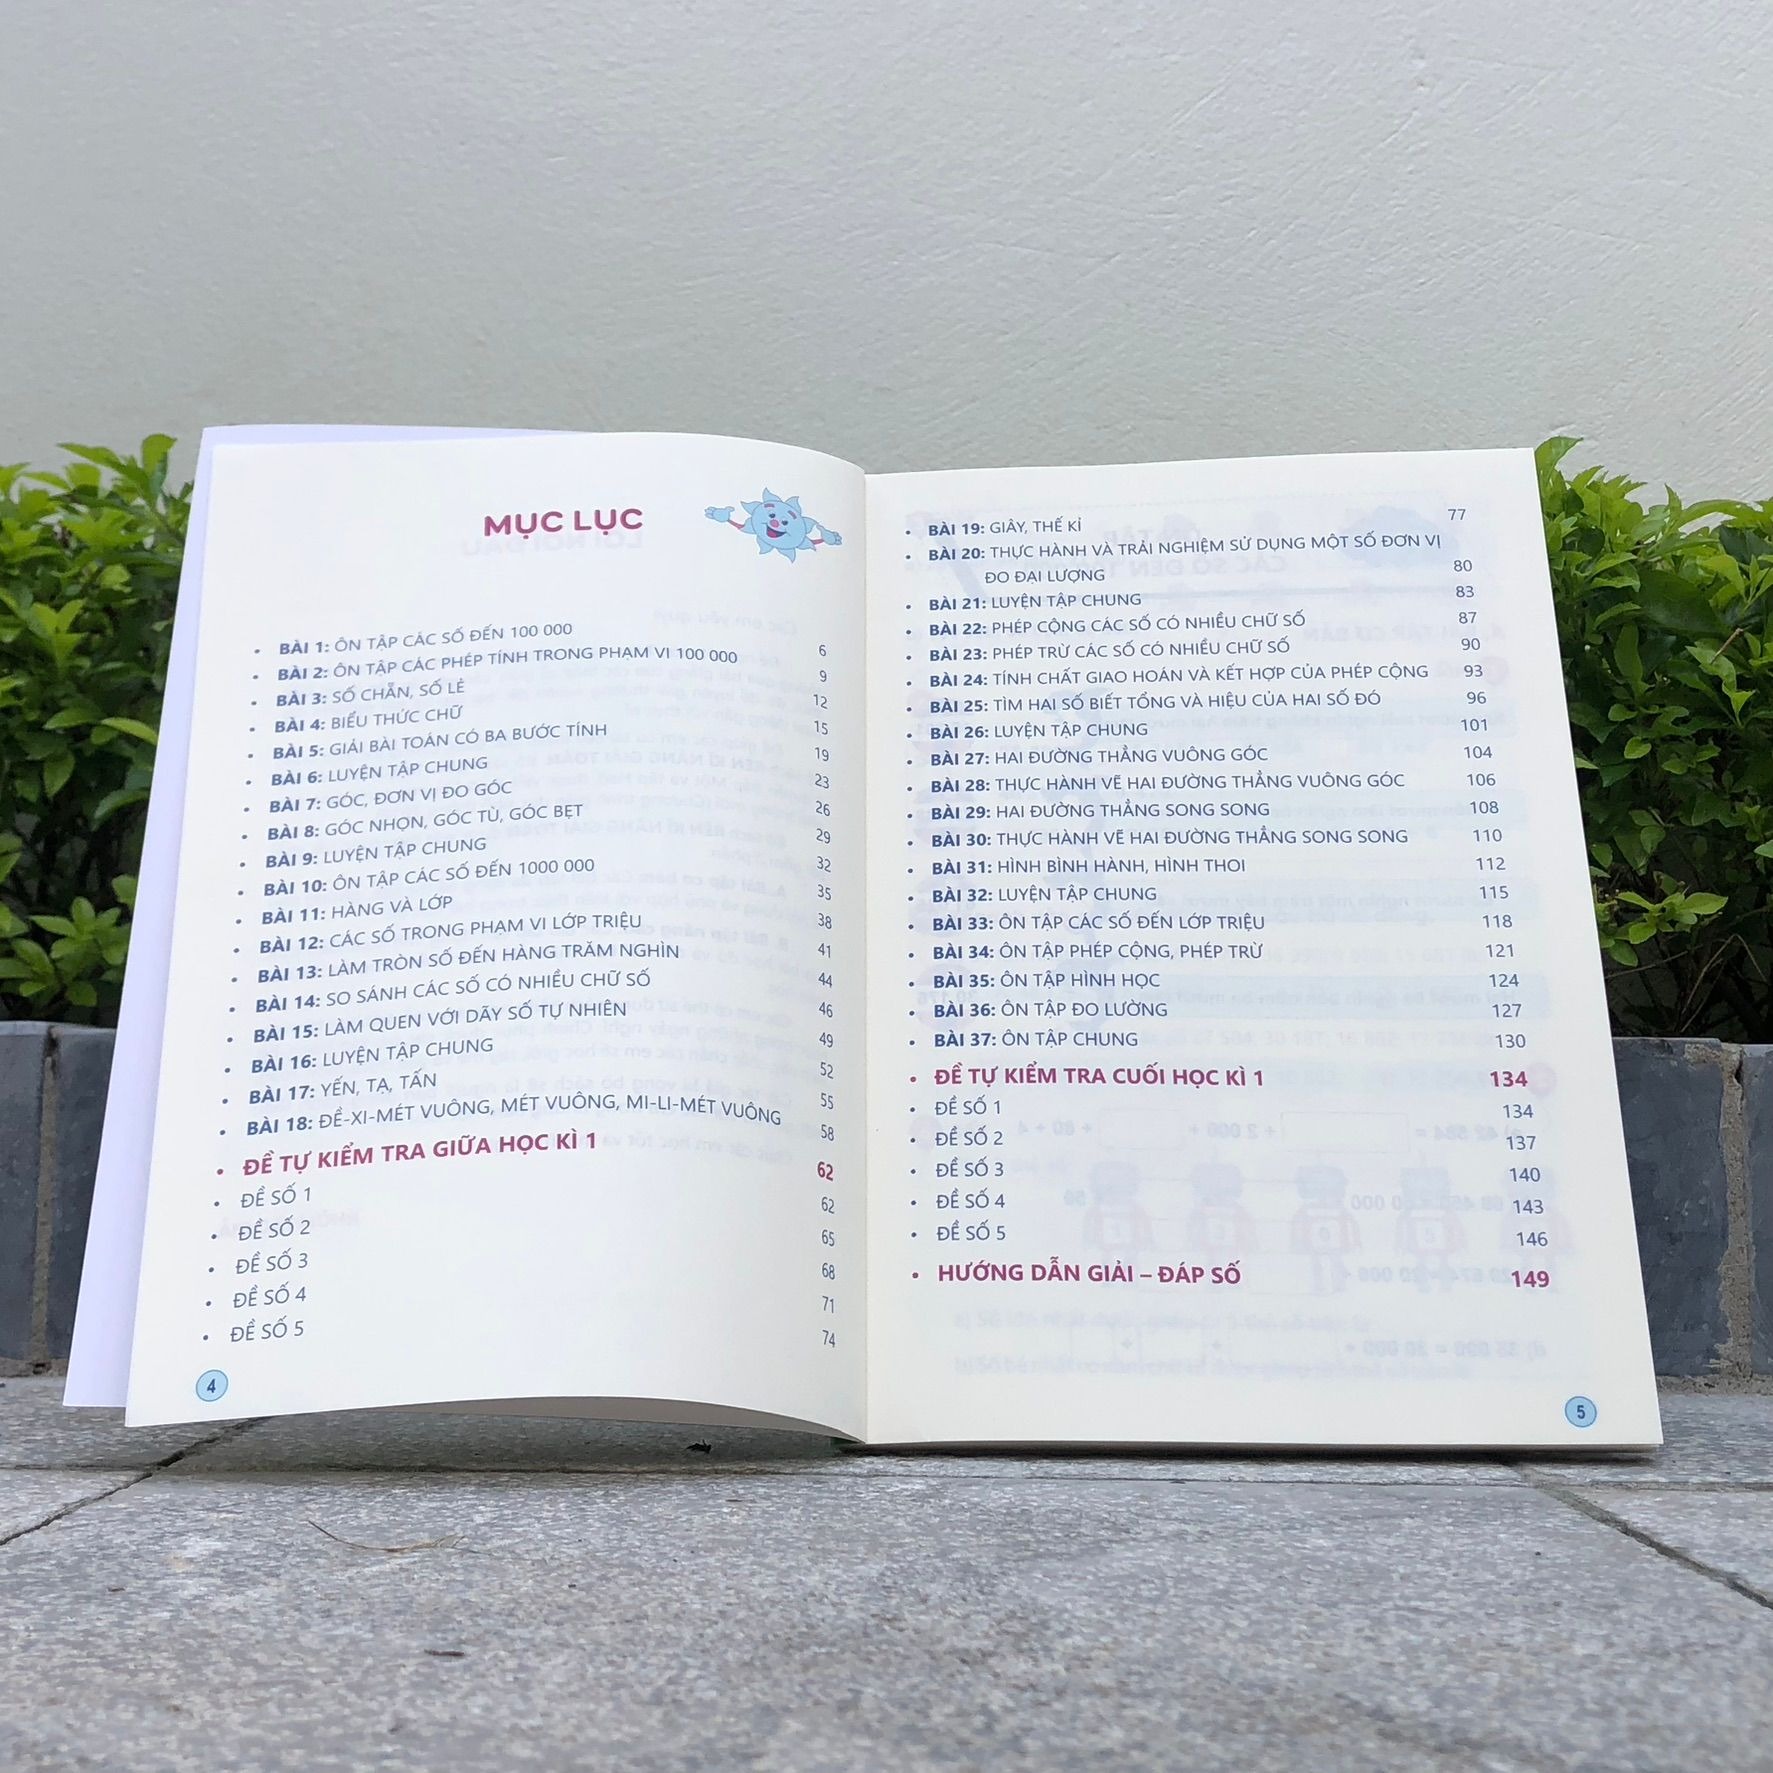 MỤC LỤC
• BÀI 1: ÔN TẬP CÁC SỐ ĐẾN 100 000 6
• BÀI 2: ÔN TẬP CÁC PHÉP TÍNH TRONG PHẠM VI 100 000 9
• BÀI 3: SỐ CHẴN, SỐ LẺ 12
• BÀI 4: BIỂU THỨC CHỮ 15
• BÀI 5: GIẢI BÀI TOÁN CÓ BA BƯỚC TÍNH 19
• BÀI 6: LUYỆN TẬP CHUNG 23
• BÀI 7: GÓC, ĐƠN VỊ ĐO GÓC 26
• BÀI 8: GÓC NHỌN, GÓC TÙ, GÓC BẸT 29
• BÀI 9: LUYỆN TẬP CHUNG 32
• BÀI 10: ÔN TẬP CÁC SỐ ĐẾN 1000 000 35
• BÀI 11: HÀNG VÀ LỚP 38
• BÀI 12: CÁC SỐ TRONG PHẠM VI LỚP TRIỆU 41
• BÀI 13: LÀM TRÒN SỐ ĐẾN HÀNG TRĂM NGHÌN 44
• BÀI 14: SO SÁNH CÁC SỐ CÓ NHIỀU CHỮ SỐ 46
• BÀI 15: LÀM QUEN VỚI DÃY SỐ TỰ NHIÊN 49
• BÀI 16: LUYỆN TẬP CHUNG 52
• BÀI 17: YẾN, TẠ, TẤN 55
• BÀI 18: ĐỀ-XI-MÉT VUÔNG, MÉT VUÔNG, MI-LI-MÉT VUÔNG 58
• ĐỀ TỰ KIỂM TRA GIỮA HỌC KÌ 1 62
• ĐỀ SỐ 1 62
• ĐỀ SỐ 2 65
• ĐỀ SỐ 3 68
• ĐỀ SỐ 4 71
• ĐỀ SỐ 5 74
4
• BÀI 19: GIÂY, THẾ KỈ 77
• BÀI 20: THỰC HÀNH VÀ TRẢI NGHIỆM SỬ DỤNG MỘT SỐ ĐƠN VỊ
ĐO ĐẠI LƯỢNG 80
• BÀI 21: LUYỆN TẬP CHUNG 83
• BÀI 22: PHÉP CỘNG CÁC SỐ CÓ NHIỀU CHỮ SỐ 87
• BÀI 23: PHÉP TRỪ CÁC SỐ CÓ NHIỀU CHỮ SỐ 90
• BÀI 24: TÍNH CHẤT GIAO HOÁN VÀ KẾT HỢP CỦA PHÉP CỘNG 93
• BÀI 25: TÌM HAI SỐ BIẾT TỔNG VÀ HIỆU CỦA HAI SỐ ĐÓ 96
• BÀI 26: LUYỆN TẬP CHUNG 101
• BÀI 27: HAI ĐƯỜNG THẲNG VUÔNG GÓC 104
• BÀI 28: THỰC HÀNH VẼ HAI ĐƯỜNG THẲNG VUÔNG GÓC 106
• BÀI 29: HAI ĐƯỜNG THẲNG SONG SONG 108
• BÀI 30: THỰC HÀNH VẼ HAI ĐƯỜNG THẲNG SONG SONG 110
• BÀI 31: HÌNH BÌNH HÀNH, HÌNH THOI 112
• BÀI 32: LUYỆN TẬP CHUNG 115
• BÀI 33: ÔN TẬP CÁC SỐ ĐẾN LỚP TRIỆU 118
• BÀI 34: ÔN TẬP PHÉP CỘNG, PHÉP TRỪ 121
• BÀI 35: ÔN TẬP HÌNH HỌC 124
• BÀI 36: ÔN TẬP ĐO LƯỜNG 127
• BÀI 37: ÔN TẬP CHUNG 130
• ĐỀ TỰ KIỂM TRA CUỐI HỌC KÌ 1 134
• ĐỀ SỐ 1 134
• ĐỀ SỐ 2 137
• ĐỀ SỐ 3 140
• ĐỀ SỐ 4 143
• ĐỀ SỐ 5 146
• HƯỚNG DẪN GIẢI – ĐÁP SỐ 149
5